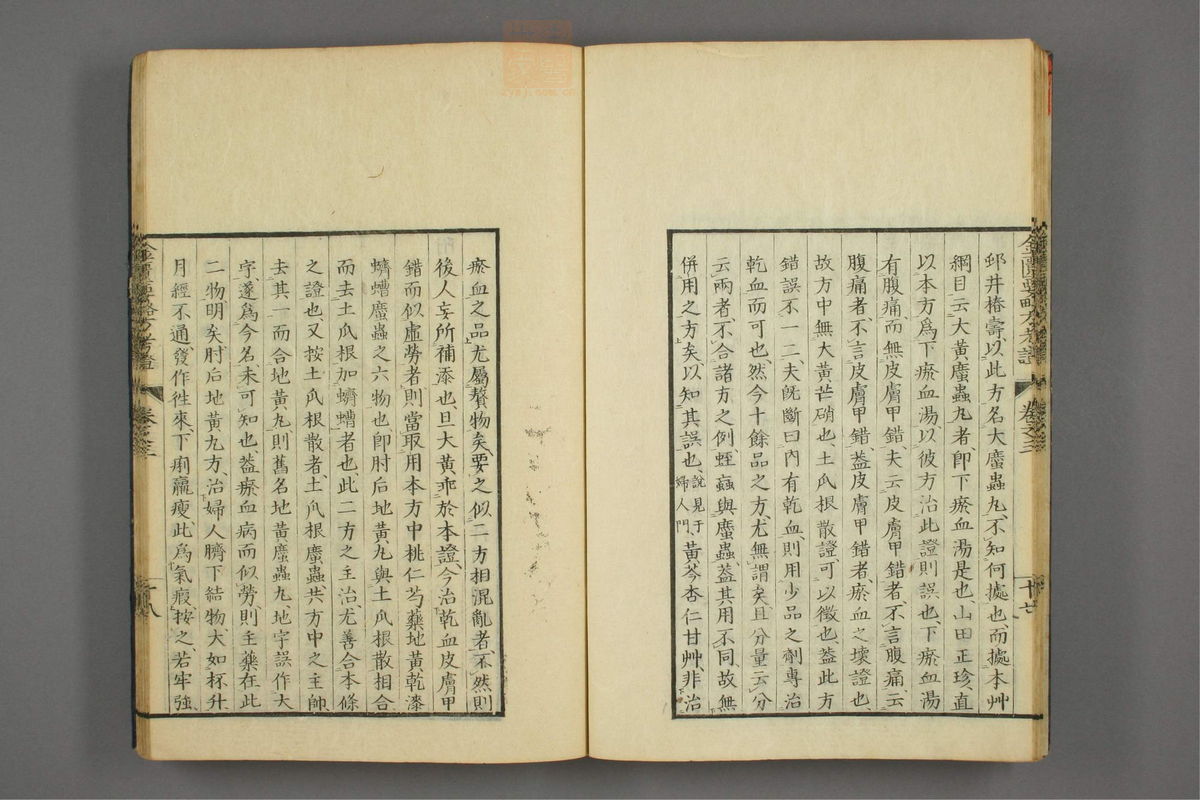 邱井椿壽以此方名大䗪蟲丸不知何據也而據本艸
綱目云大黃䗪蟲丸者卽下瘀血湯是也山田正珍直
以本方爲下瘀血湯以彼方治此證則誤也下瘀血湯
有腹痛而無皮膚甲錯夫云皮膚甲錯者不言腹痛云
腹痛者不言皮膚甲錯蓋皮膚甲錯者瘀血之壞證也
故方中無大黃芒硝也土瓜根散證可以徵也蓋此方
錯誤不一二夫旣斷曰內有乾血則用少品之劑專治
乾血而可也然今十餘品之方尤無謂矣且分量云分
云兩者不合諸方之例蛭蝱與䗪蟲蓋其用不同故無
併用之方矣以知其誤也說見于婦人門黃芩杏仁甘艸非治
金匱要略方考證 卷之三 十七
瘀血之品尤屬贅物矣要之似二方相混亂者不然則
後人妄所補添也且大黃乖於本證今治乾血皮膚甲
錯而似虛勞者則當取用本方中桃仁芍藥地黃乾漆
蠐螬䗪蟲之六物也卽肘后地黃丸與土瓜根散相合
而去土瓜根加蠐螬者也此二方之主治尤善合本條
之證也又按土瓜根散者土瓜根䗪蟲共方中之主帥
去其一而合地黃丸則舊名地黃䗪蟲丸地字誤作大
字遂爲今名未可知也蓋瘀血病而似勞則主藥在此
二物明矣肘后地黃丸方治婦人臍下結物大如杯升
月經不通發作往來下痢羸瘦此爲氣瘕按之若牢強
金匱要略方考證 卷之三 十八